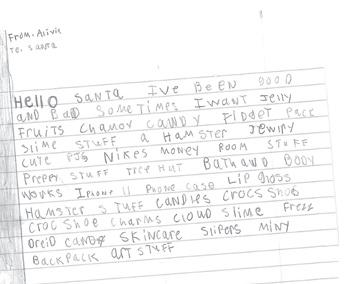 From. Alivia
To. Santa
Hello SANTA I'VE BEEN GOOD
AND BAD SOMETIMES I WANT Jelly
Fruits Chamoy CANDY FIDGET PACK
Slime STUFF A HAMSTER Jewlry
Cute PJs NIKES MONEY ROOM STUFF
Preppy STUFF TREE HUT BATH AND BODY
WORKS IPHONE 11 PHONE CASE LIP GLOSS
HAMSTER STUFF CANDLES CROCS SHOE
CROC SHOE CHARMS CLOUD SLIME Freez
Dreid CANDY SKINCARE SLIPERS MINY
BACKPACK ART STUFF